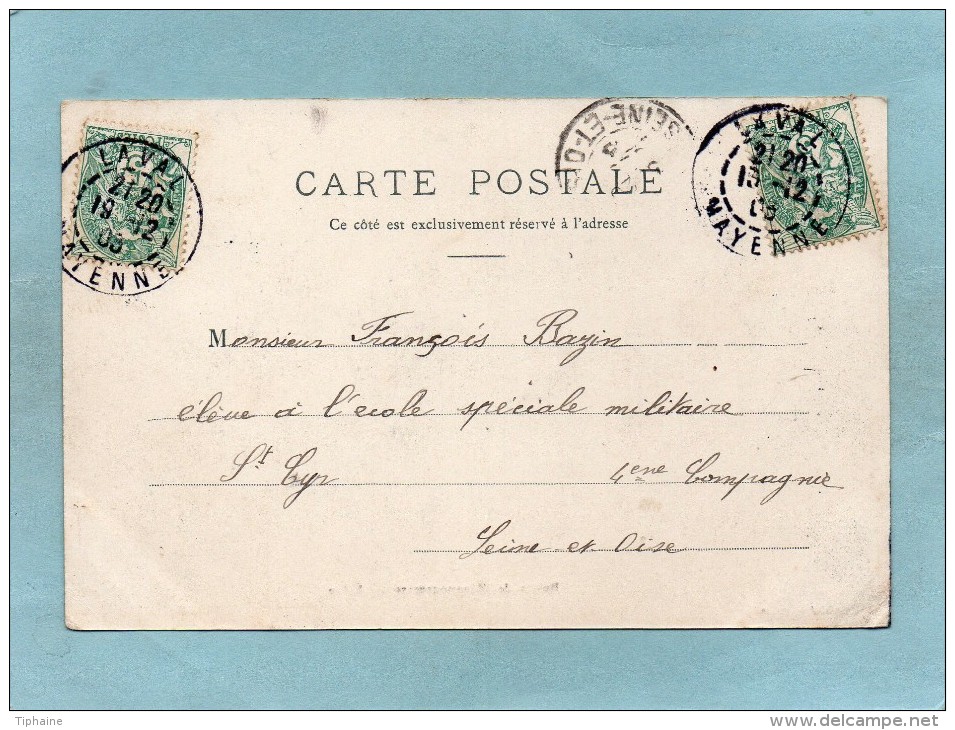 LAVAL
21 20
19 12
05
MAYENNE
SEINE-ET-O
LAVAL
21 20
19 12
05
MAYENNE
CARTE POSTALE
Ce côté est exclusivement réservé à l'adresse
Monsieur François Bazin
élève à l'école spéciale militaire
St Cyr 4ene Compagnie
Seine et Oise
Tiphaine
www.delcampe.net